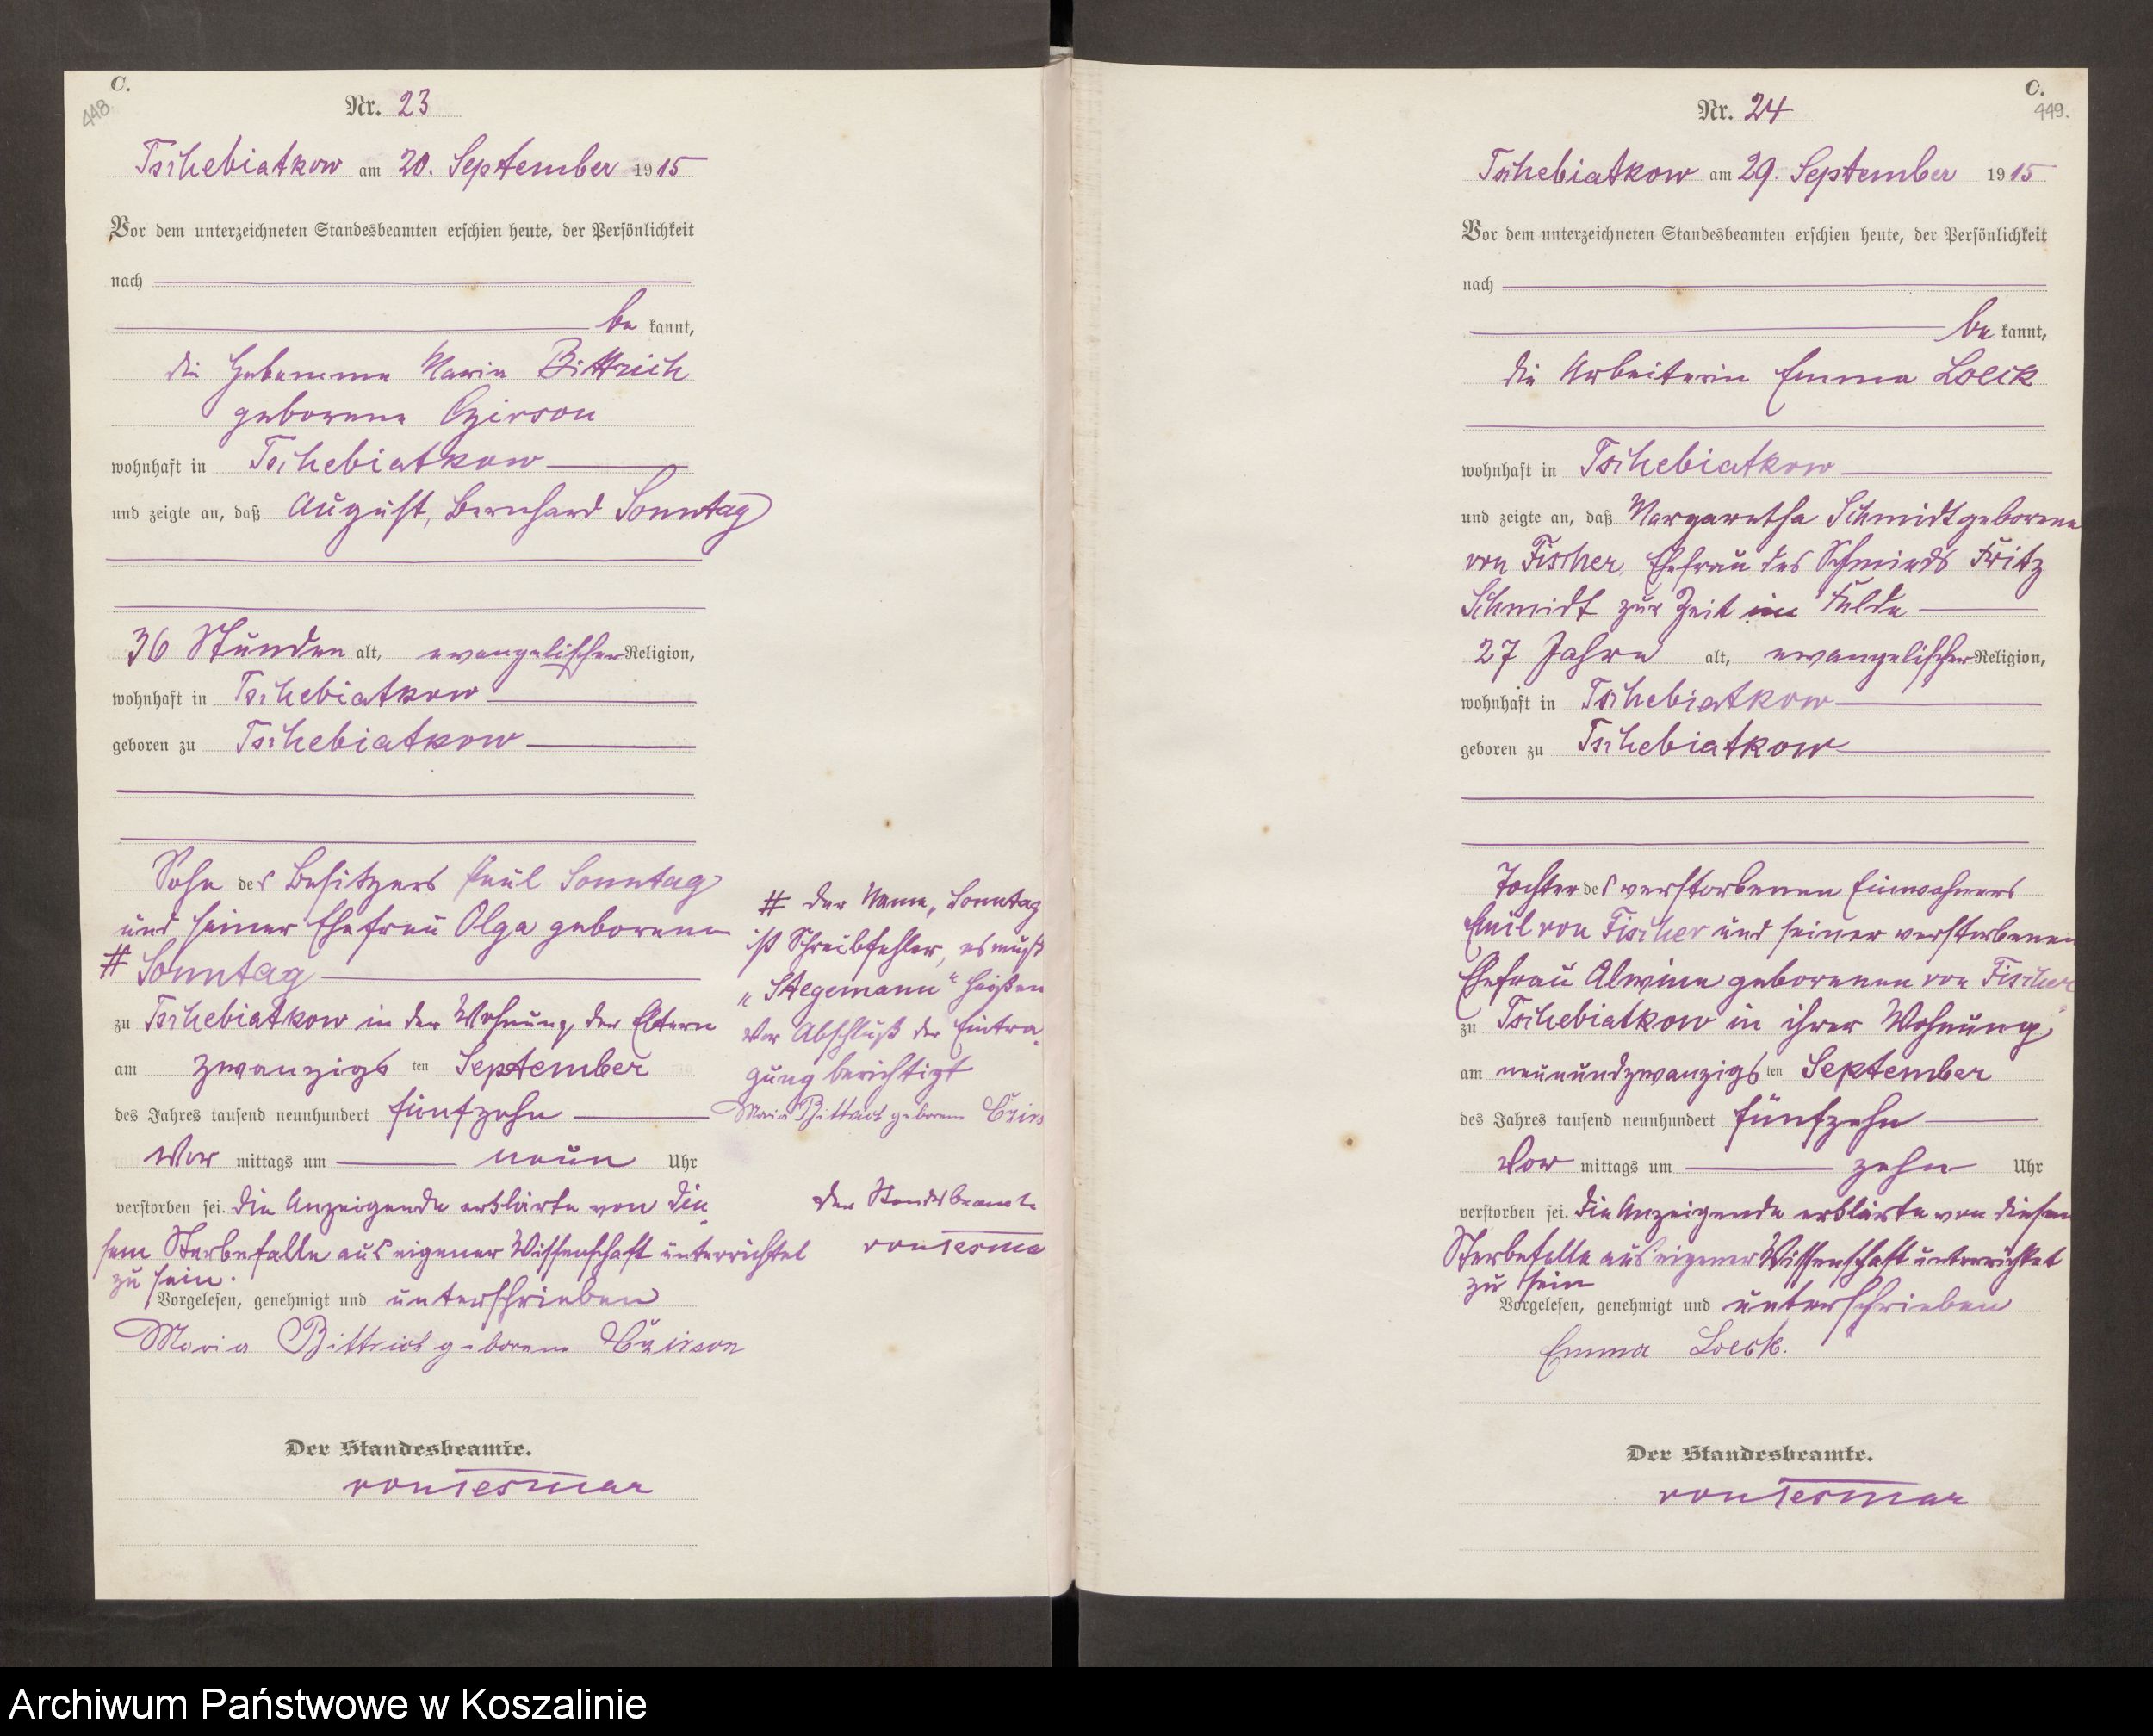 C.
448.
Nr. 23
Tschebiatkow am 20. September 1915
Vor dem unterzeichneten Standesbeamten erschien heute, der Persönlichkeit
nach
be kannt,
die Hebamme Maria Bittrich
geborene Czirson
wohnhaft in Tschebiatkow
und zeigte an, daß August, Bernhard Sonntag
36 Stunden alt, evangelischer Religion,
wohnhaft in Tschebiatkow
geboren zu Tschebiatkow
Sohn des Besitzers Paul Sonntag
und seiner Ehefrau Olga geborenen
# Sonntag
zu Tschebiatkow in der Wohnung der Eltern
am zwanzigs ten September
des Jahres tausend neunhundert fünfzehn
Vor mittags um neun Uhr
verstorben sei. Die Anzeigende erklärte von die
sem Sterbefalle aus eigener Wissenschaft unterrichtet
zu sein.
Vorgelesen, genehmigt und unterschrieben
Maria Bittrich geborene Czirson
Der Standesbeamte.
von Tesmar
# Der Name, Sonntag
ist Schreibfehler, es muß
„Stegemann" heißen
Vor Abschluß der Eintra
gung berichtigt
Maria Bittrich geborene Czirs
Der Standesbeamte
von Tesma
C.
449.
Nr. 24
Tschebiatkow am 29. September 1915
Vor dem unterzeichneten Standesbeamten erschien heute, der Persönlichkeit
nach
be kannt,
die Arbeiterin Emma Loeck
wohnhaft in Tschebiatkow
und zeigte an, daß Margaretha Schmidt geborene
von Fischer, Ehefrau des Schmieds Fritz
Schmidt zur Zeit im Felde
27 Jahre alt, evangelischer Religion,
wohnhaft in Tschebiatkow
geboren zu Tschebiatkow
Tochter des verstorbenen Einwohners
Emil von Fischer und seiner verstorbenen
Ehefrau Alwine geborenen von Fischer
zu Tschebiatkow in ihrer Wohnung
am neunundzwanzigs ten September
des Jahres tausend neunhundert fünfzehn
Vor mittags um zehn Uhr
verstorben sei. Die Anzeigende erklärte von diesem
Sterbefalle aus eigener Wissenschaft unterrichtet
zu sein
Vorgelesen, genehmigt und unterschrieben
Emma Loeck.
Der Standesbeamte.
von Tesmar
Archiwum Państwowe w Koszalinie